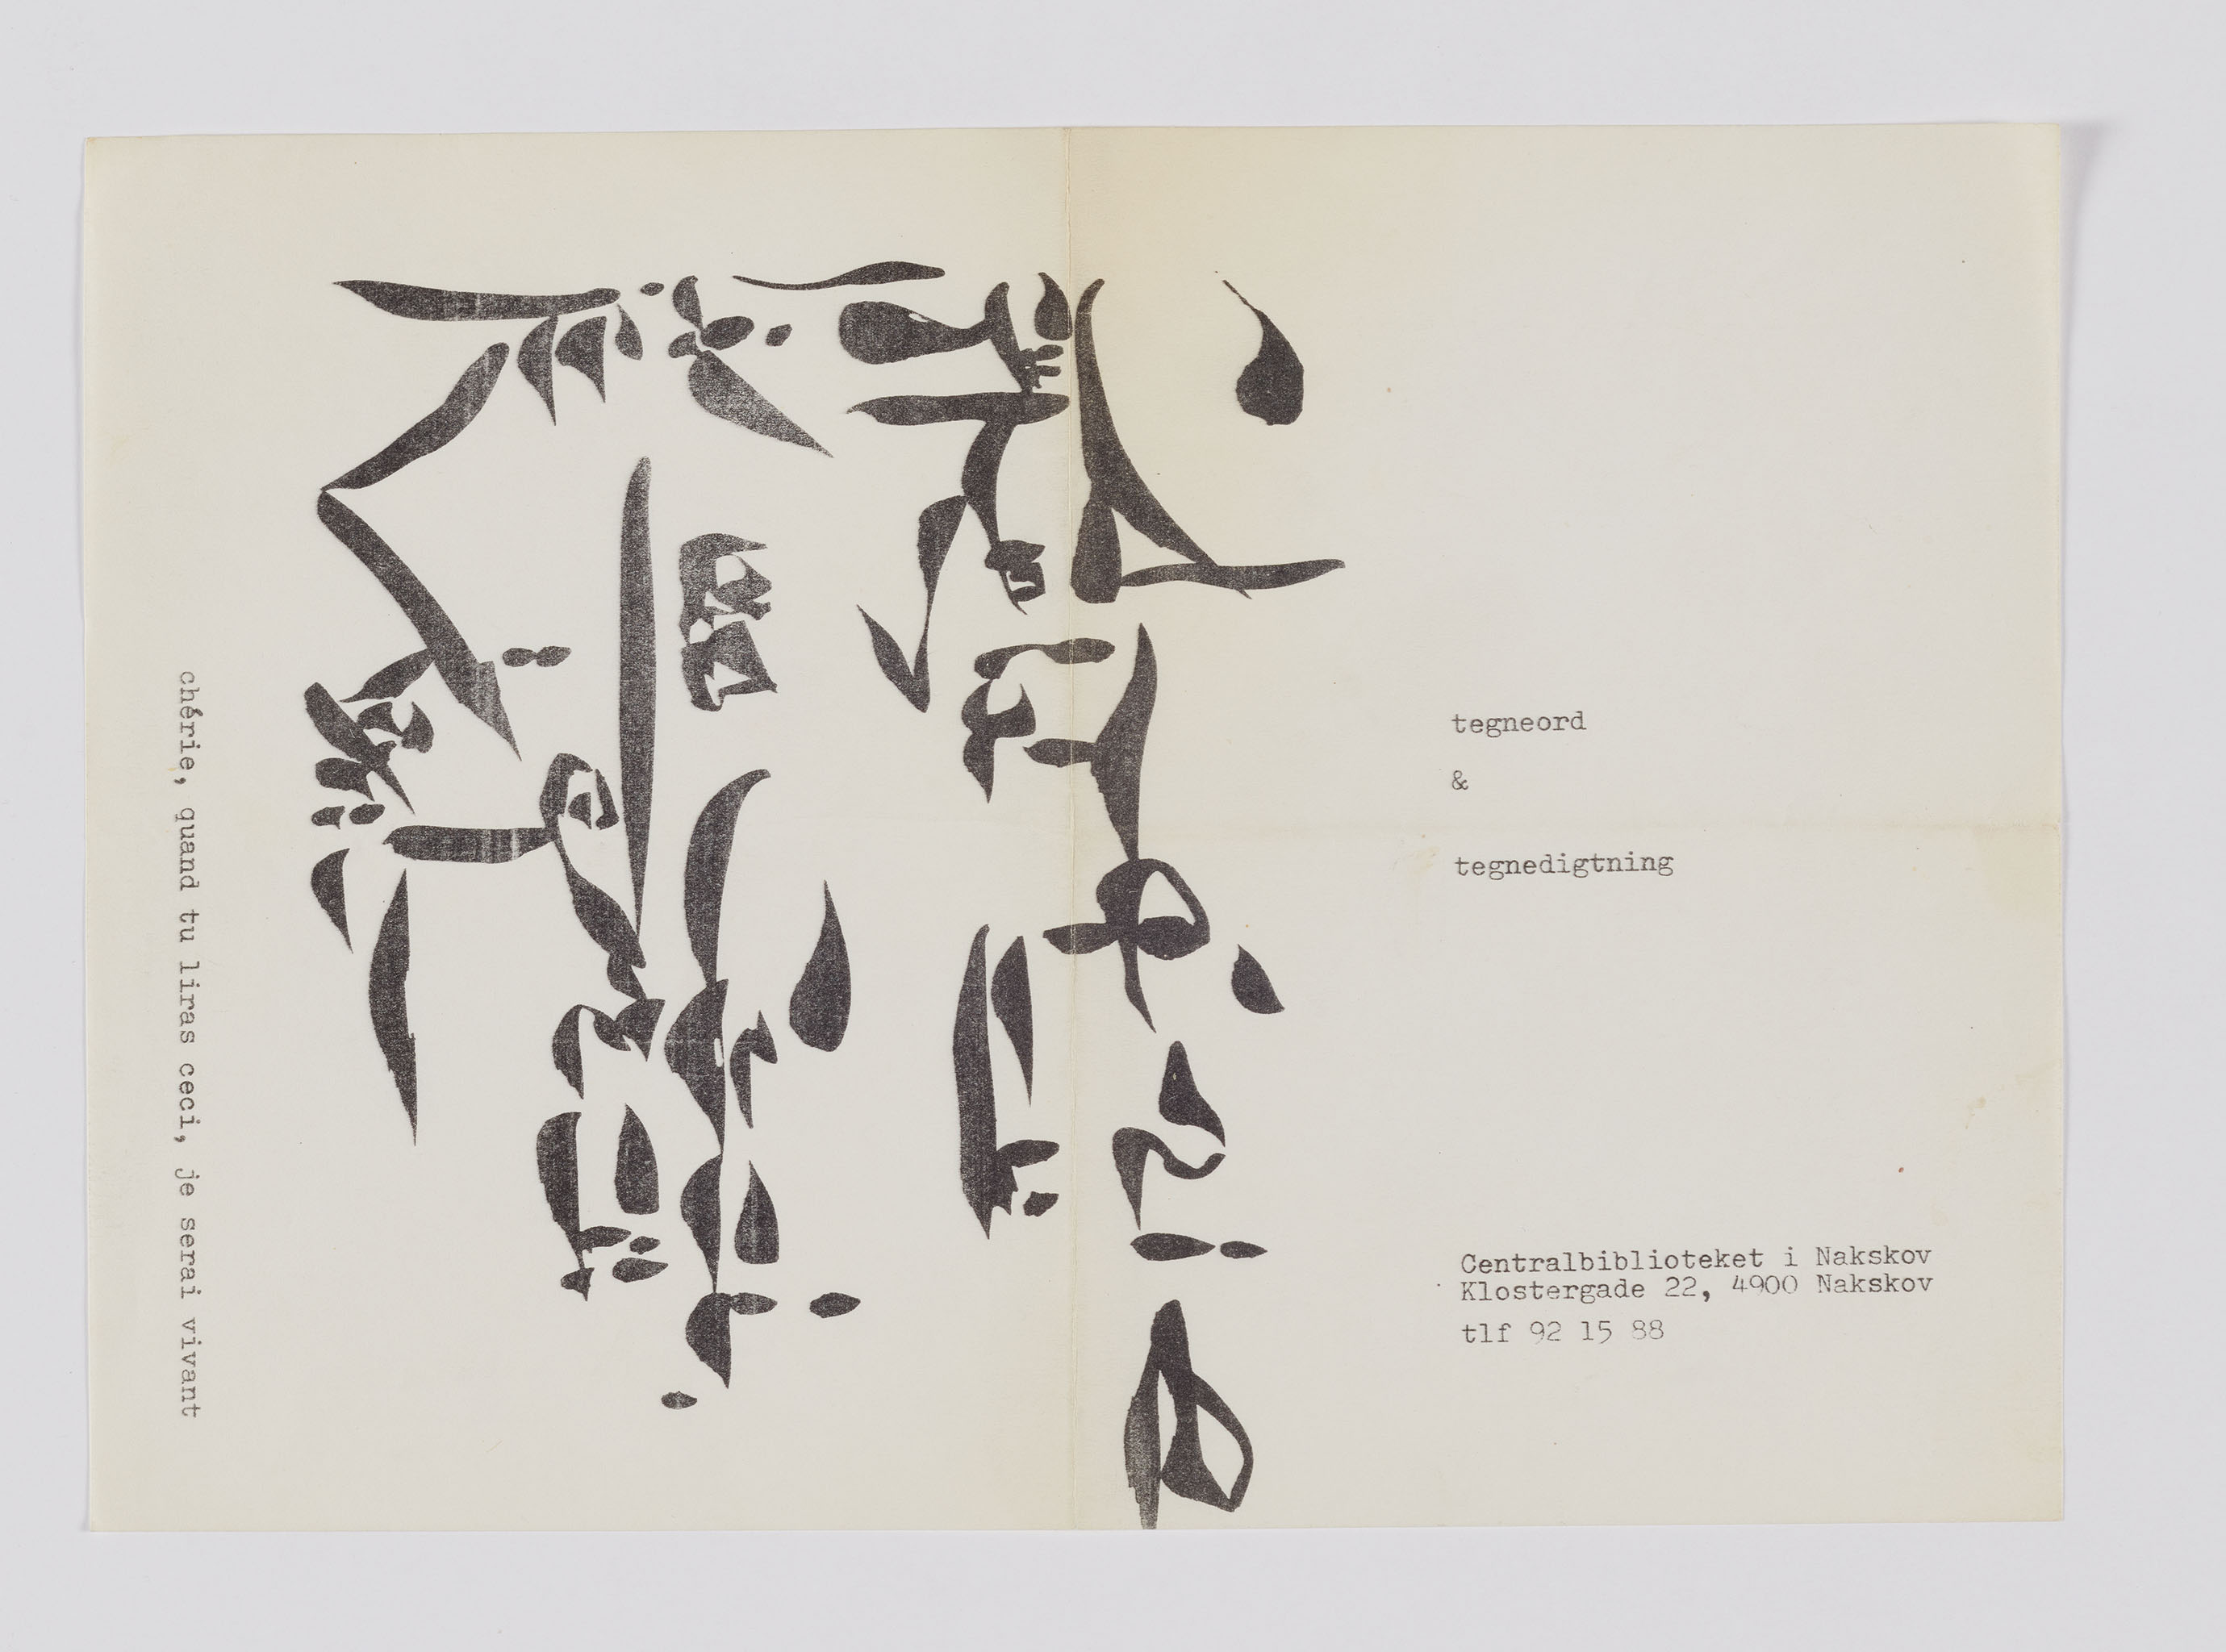 tegneord
&
tegnedigtning
Centralbiblioteket i Nakskov
Klostergade 22, 4900 Nakskov
tlf 92 15 88
chérie, quand tu liras ceci, je serai vivant